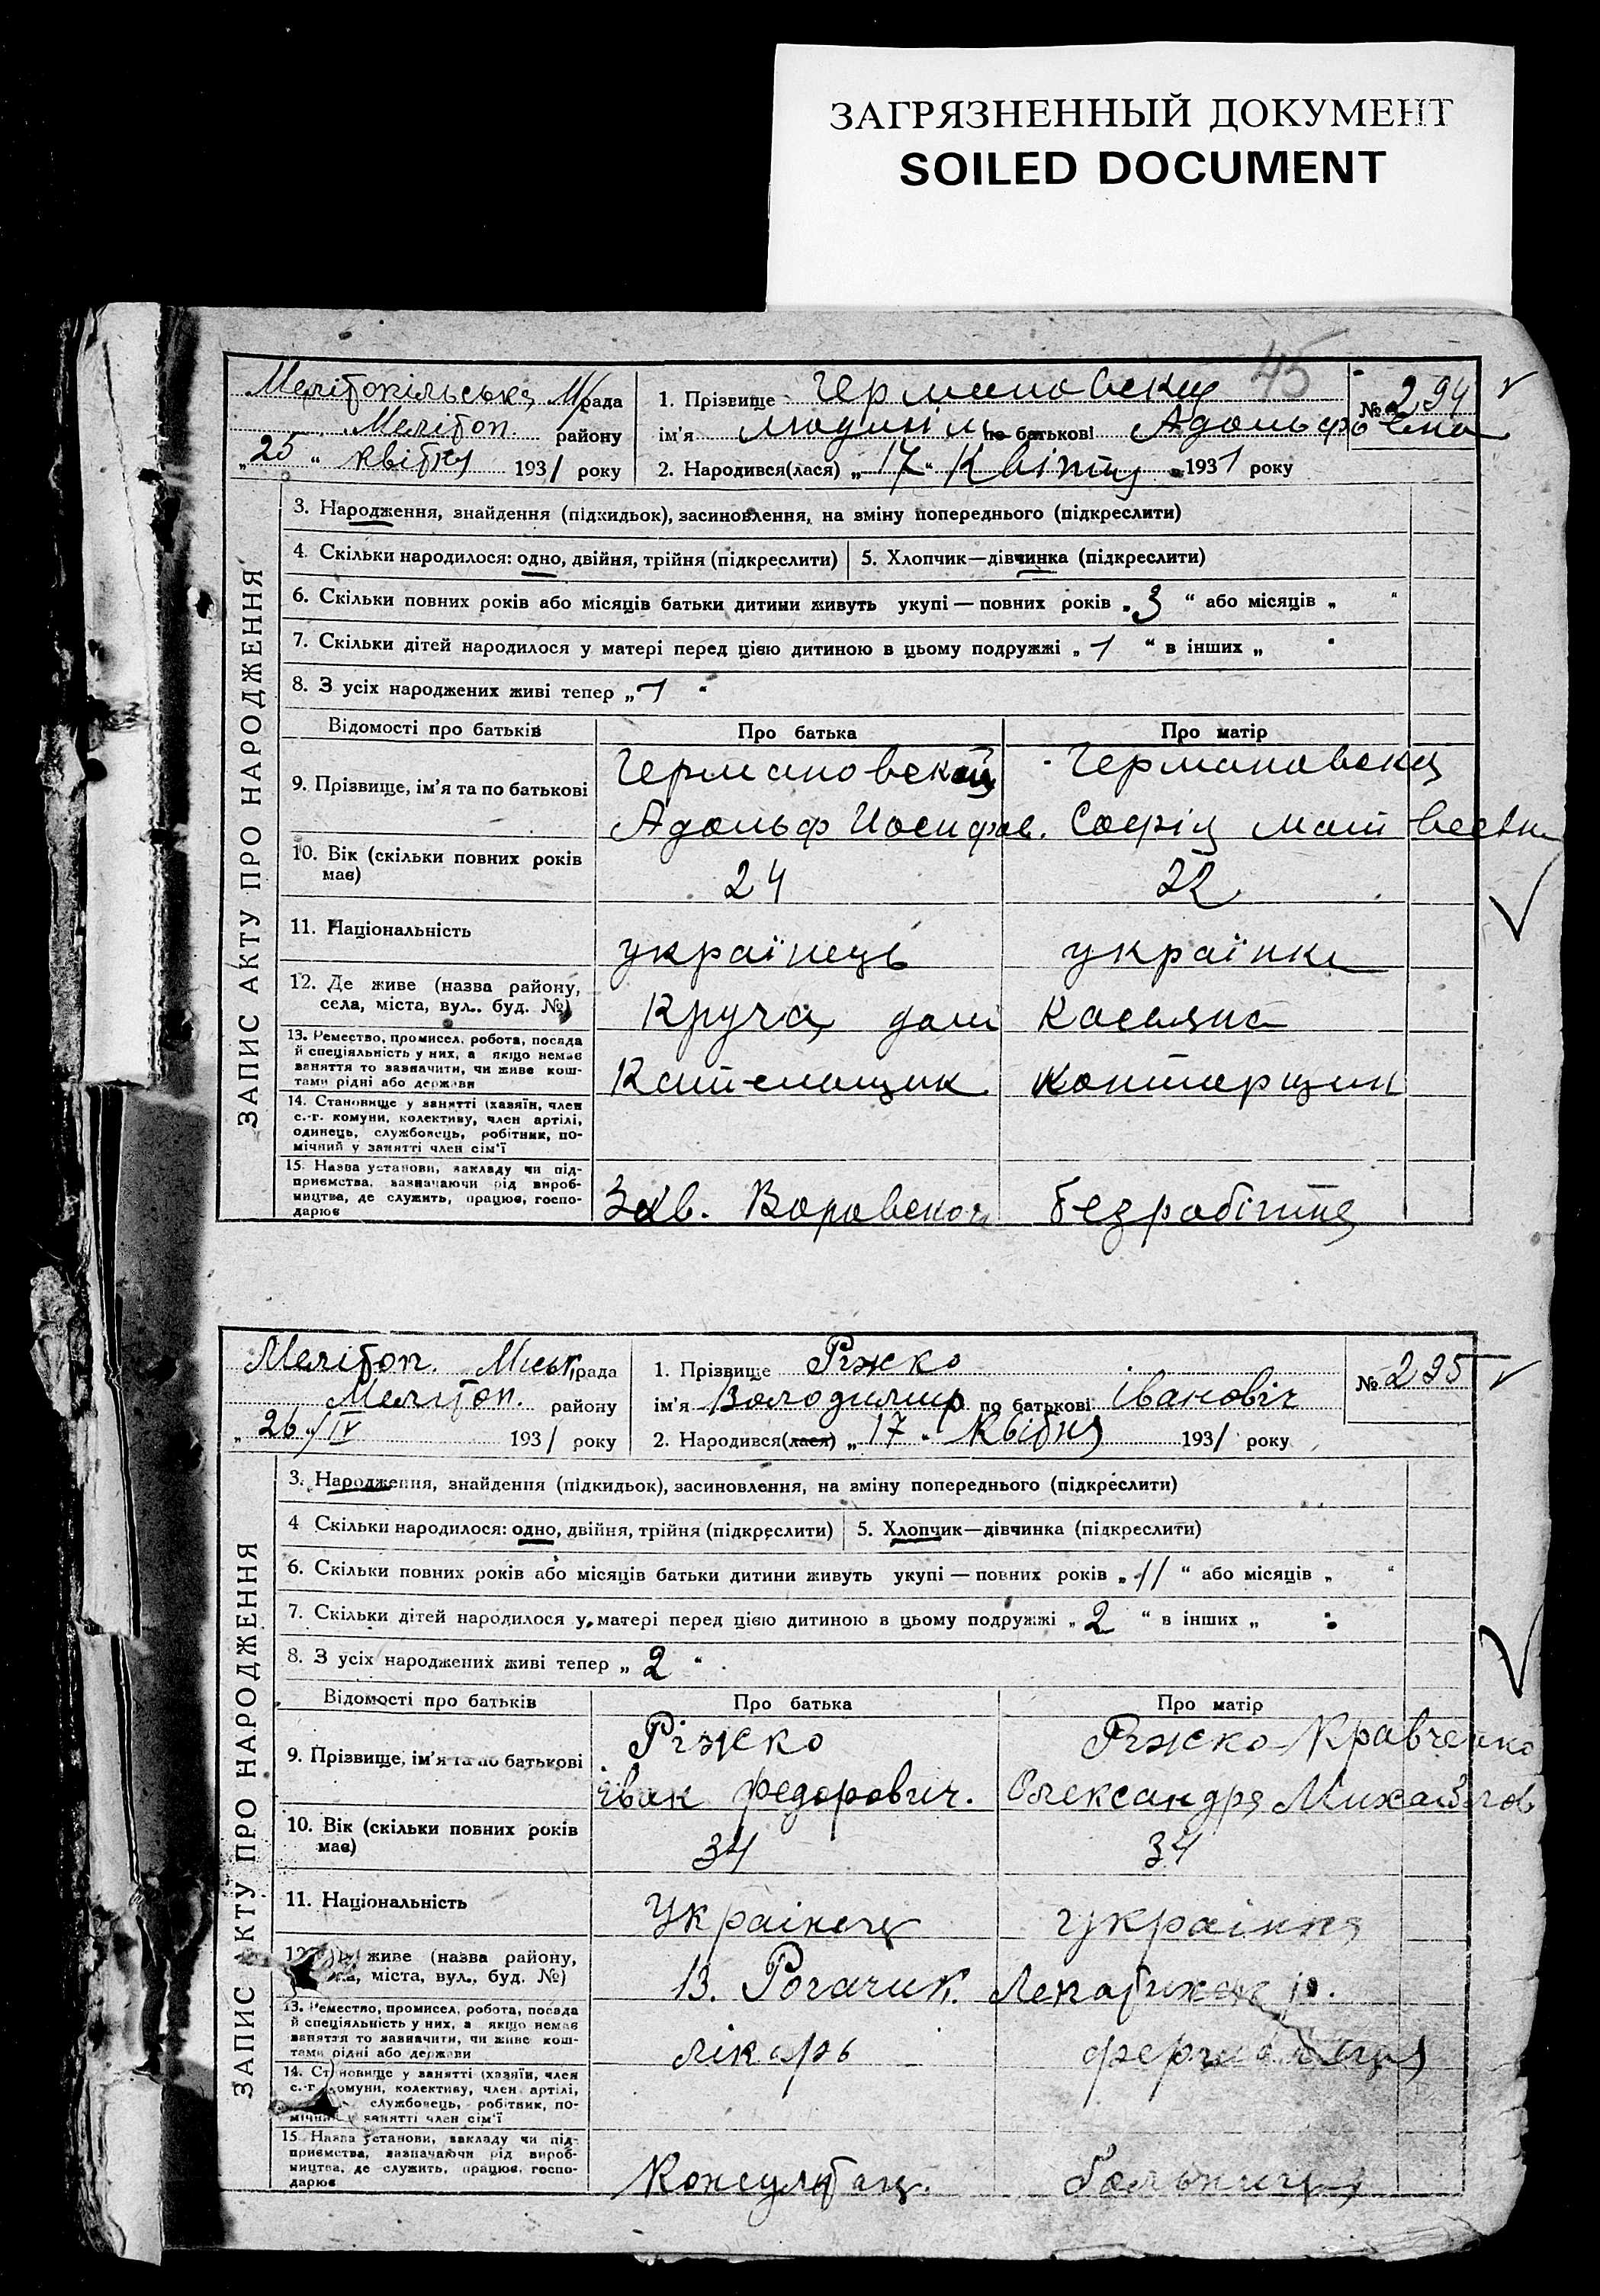 ЗАГРЯЗНЕННЫЙ ДОКУМЕНТ
SOILED DOCUMENT
45
ЗАПИС АКТУ ПРО НАРОДЖЕННЯ
Мелітопільська М/рада
Меліτоп. району
„25“ квітня 1931 року
1. Прізвище Германовская
ім'я по батькові Адольфовна
№ 294
2. Народився(лася) „17“ Квітня 1931 року
3. Народження, знайдення (підкидьок), засиновлення, на зміну попереднього (підкреслити)
4. Скільки народилося: одно, двійня, трійня (підкреслити) 5. Хлопчик—дівчинка (підкреслити)
6. Скільки повних років або місяців батьки дитини живуть укупі — повних років „3“ або місяців „ “
7. Скільки дітей народилося у матері перед цією дитиною в цьому подружжі „1“ в інших „
8. З усіх народжених живі тепер „1“
Відомості про батьків Про батька Про матір
9. Прізвище, ім'я та по батькові Германовский Германовская
Адольф Иосифов. Софія Матвеевн
10. Вік (скільки повних років має) 24 22
11. Національність українець українка
12. Де живе (назва району, села, міста, вул., буд. №) Круча, дом
13. Ремество, промисел, робота, посада й спеціяльність у них, а якщо немає заняття то зазначити, чи живе коштами рідні або держави конторщик
14. Становище у занятті (хазяїн, член с.-г. комуни, колективу, член артілі, одинець, службовець, робітник, помічний у занятті член сім'ї
15. Назва установи, закладу чи підприємства, зазначаючи рід виробництва, де служить, працює, господарює Зав. Воровского безробітня
ЗАПИС АКТУ ПРО НАРОДЖЕННЯ
Меліτоп. Міськрада
Меліτоп. району
„26“/IV 1931 року
1. Прізвище Ріжко
ім'я Володимир по батькові Івановіч
№ 295
2. Народився(лася) „17“ Квітня 1931 року
3. Народження, знайдення (підкидьок), засиновлення, на зміну попереднього (підкреслити)
4 Скільки народилося: одно, двійня, трійня (підкреслити) 5. Хлопчик—дівчинка (підкреслити)
6. Скільки повних років або місяців батьки дитини живуть укупі — повних років „11“ або місяців „ “
7. Скільки дітей народилося у матері перед цією дитиною в цьому подружжі „2“ в інших „
8. З усіх народжених живі тепер „2“
Відомості про батьків Про батька Про матір
9. Прізвище, ім'я та по батькові Ріжко Ріжко-Кравченко
Іван Федорович. Олександра Михайлов
10. Вік (скільки повних років має) 34 34
11. Національність Українець українка
живе (назва району, міста, вул., буд. №) В. Рогачик.
13. Ремество, промисел, робота, посада й спеціяльність у них, а якщо немає заняття то зазначити, чи живе коштами рідні або держави лікарь
14. Становище у занятті (хазяїн, член с.-г. комуни, колективу, член артілі, службовець, робітник, помічний у занятті член сім'ї
15. Назва установи, закладу чи підприємства, зазначаючи рід виробництва, де служить, працює, господарює Консультац. больниця